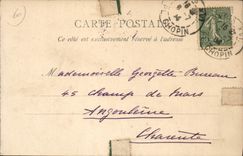 CARTE POSTALE
Ce côté est exclusivement réservé à l'adresse
CHOPIN
CHOPIN
Mademoiselle Georgette Bureau
45 champ de mars
Angoulême
Charente